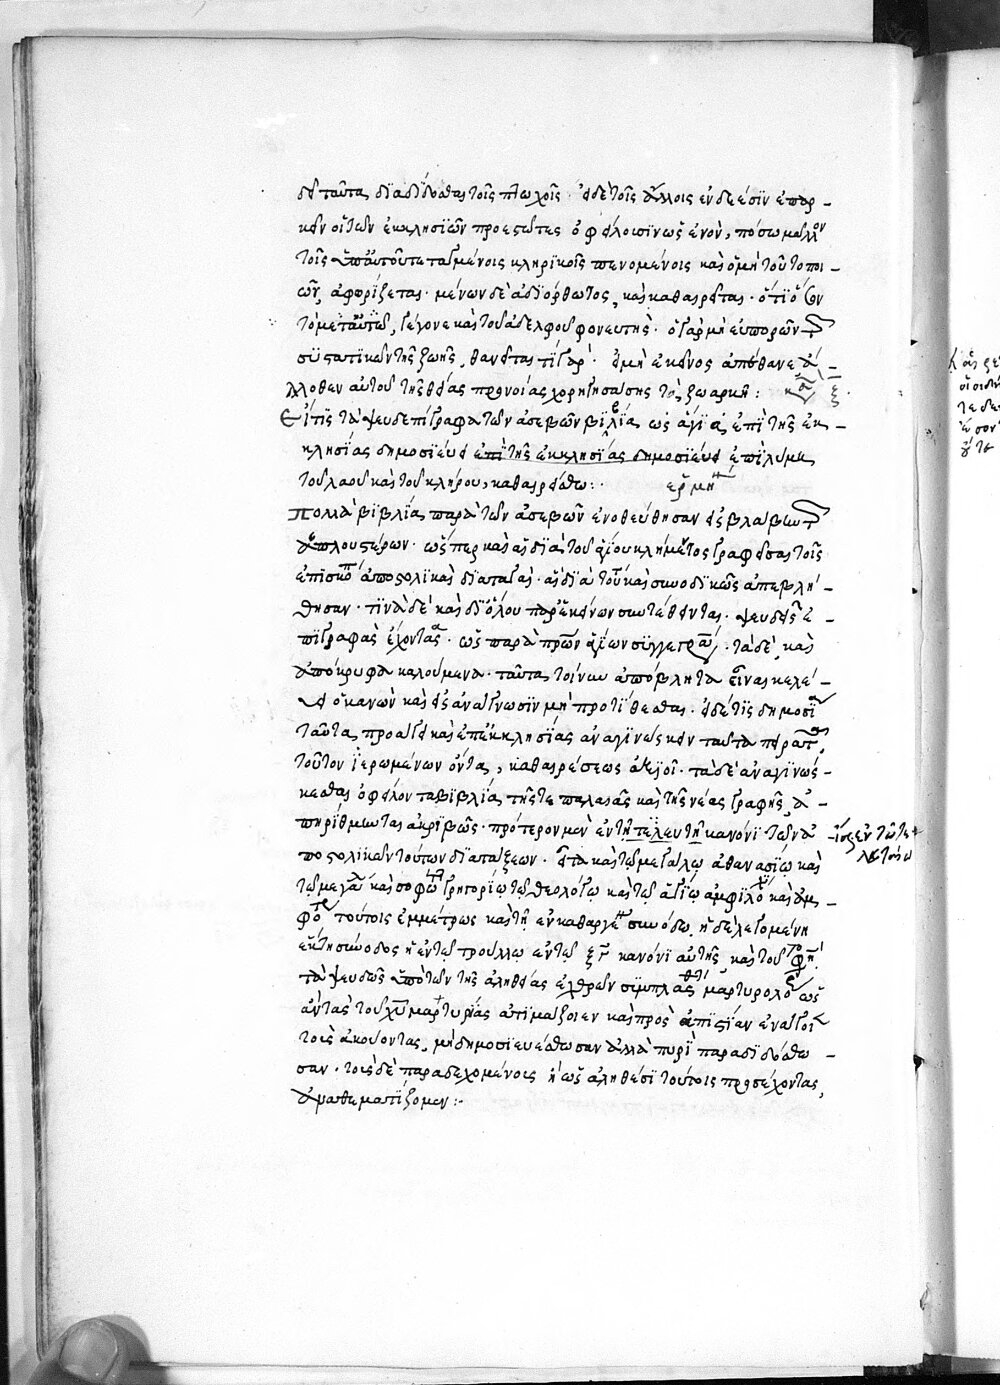 δεῖ ταῦτα διαδίδοσθαι τοῖς πτωχοῖς. εἰ δὲ τοῖς ἄλλοις ἐνδεέσιν ἐπαρ-
κεῖν οἱ τῶν ἐκκλησιῶν προεστῶτες ὀφείλουσιν ὡς ἐνὸν, πόσω μᾶλλον
τοῖς ὑπ' αὐτοὺς τεταγμένοις κληρικοῖς πενομένοις καὶ ὁ μὴ τοῦτο ποι-
ῶν, ἀφορίζεται. μένων δὲ ἀδιόρθωτος, καὶ καθαιρεῖται. ὅτι ὅσον
τὸ μετ' αὐτῶ, γέγονε καὶ τοῦ ἀδελφοῦ φονευτής. ὁ γὰρ μὴ εὐπορῶν τῶν
συστατικῶν τῆς ζωῆς, θανεῖται τί γάρ. εἰ μὴ ἐκεῖνος ἀπέθανε ἀ-
λλοθεν αὐτοῦ τῆς θείας προνοίας χορηγησάσης τὸ ζωαρκὲς: κα ξ.
Εἴ τις τὰ ψευδεπίγραφα τῶν ἀσεβῶν βιβλία ὡς ἅγια ἐπὶ τῆς ἐκ-
κλησίας δημοσιεύει ἐπὶ τῆς ἐκκλησίας δημοσιεύει ἐπὶ λύμῃ
τοῦ λαοῦ καὶ τοῦ κλήρου, καθαιρείσθω: ἑρμη
Πολλὰ βιβλία παρὰ τῶν ἀσεβῶν ἐνοθεύθησαν εἰς βλάβην τῶν
ἁπλουστέρων. ὥσπερ καὶ αἱ διὰ τοῦ ἁγίου κλήμεντος γραφεῖσαι τοῖς
ἐπισκό ἀποστολικαὶ διαταγαί. αἱ διὰ τοῦτο καὶ συνοδικῶς ἀπεβλή-
θησαν. τινὰ δὲ καὶ δι' ὅλου παρ' ἐκείνων συντέθεινται. ψευδεῖς ἐ-
πιγραφὰς ἔχοντα. ὡς παρά τινων ἁγίων συγγεγραμ. τὰ δὲ καὶ
ἀπόκρυφα καλούμενα. ταῦτα τοίνυν ἀπόβλητα εἶναι κελεύ-
ει ὁ κανὼν καὶ εἰς ἀνάγνωσιν μὴ προτίθεσθαι. εἰ δέ τις δημοσία
ταῦτα προάγει καὶ ἐπ' ἐκκλησίας ἀναγινώσκειν ταῦτα πειρᾶται,
τοῦτον ἱερωμένων ὄντα, καθαιρέσεως ἀξιοῖ. τὰ δὲ ἀναγινώσ-
κεσθαι ὀφείλοντα βιβλία τῆς τε παλαιᾶς καὶ τῆς νέας γραφῆς, ἀ-
πηρίθμηνται ἀκριβῶς. πρότερον μὲν ἐν τῇ τελευτῇ κανόνι τῶν ἀ- ἴσως ἐν τῷ τε-
ποστολικῶν τούτων διατάξεων. εἶτα καὶ τῷ μεγάλῳ ἀθανασίῳ καὶ λευταίω
τῷ μεγά καὶ σοφῶ γρηγορίῳ τῷ θεολόγῳ καὶ τῷ ἁγίῳ ἀμφιλό καὶ ἀμ-
φο τούτοις ἐμμέτρως καὶ τῇ ἐν καθαργέ συνόδῳ. ἡ δὲ λεγομένη
ἕκτη σύνοδος ἡ ἐν τῷ τρούλλω ἐν τῷ ξγ κανόνι αὐτῆς καὶ τοῦτο φη.
τὰ ψευδῶς ὑπὸ τῶν τῆς ἀληθείας ἐχθρῶν συμπλασθ μαρτυρολό ὡς
ἂν τὰς τοῦ χυ μαρτυρίας ἀτιμάζοιεν καὶ πρὸς ἀπιστίαν ἐνάγοι
τοὺς ἀκούοντας, μὴ δημοσιευέσθωσαν ἀλλὰ πυρὶ παραδιδόσθω-
σαν. τοὺς δὲ παραδεχομένους ἢ ὡς ἀληθέσι τούτοις προσέχοντας,
ἀναθεματίζομεν:-